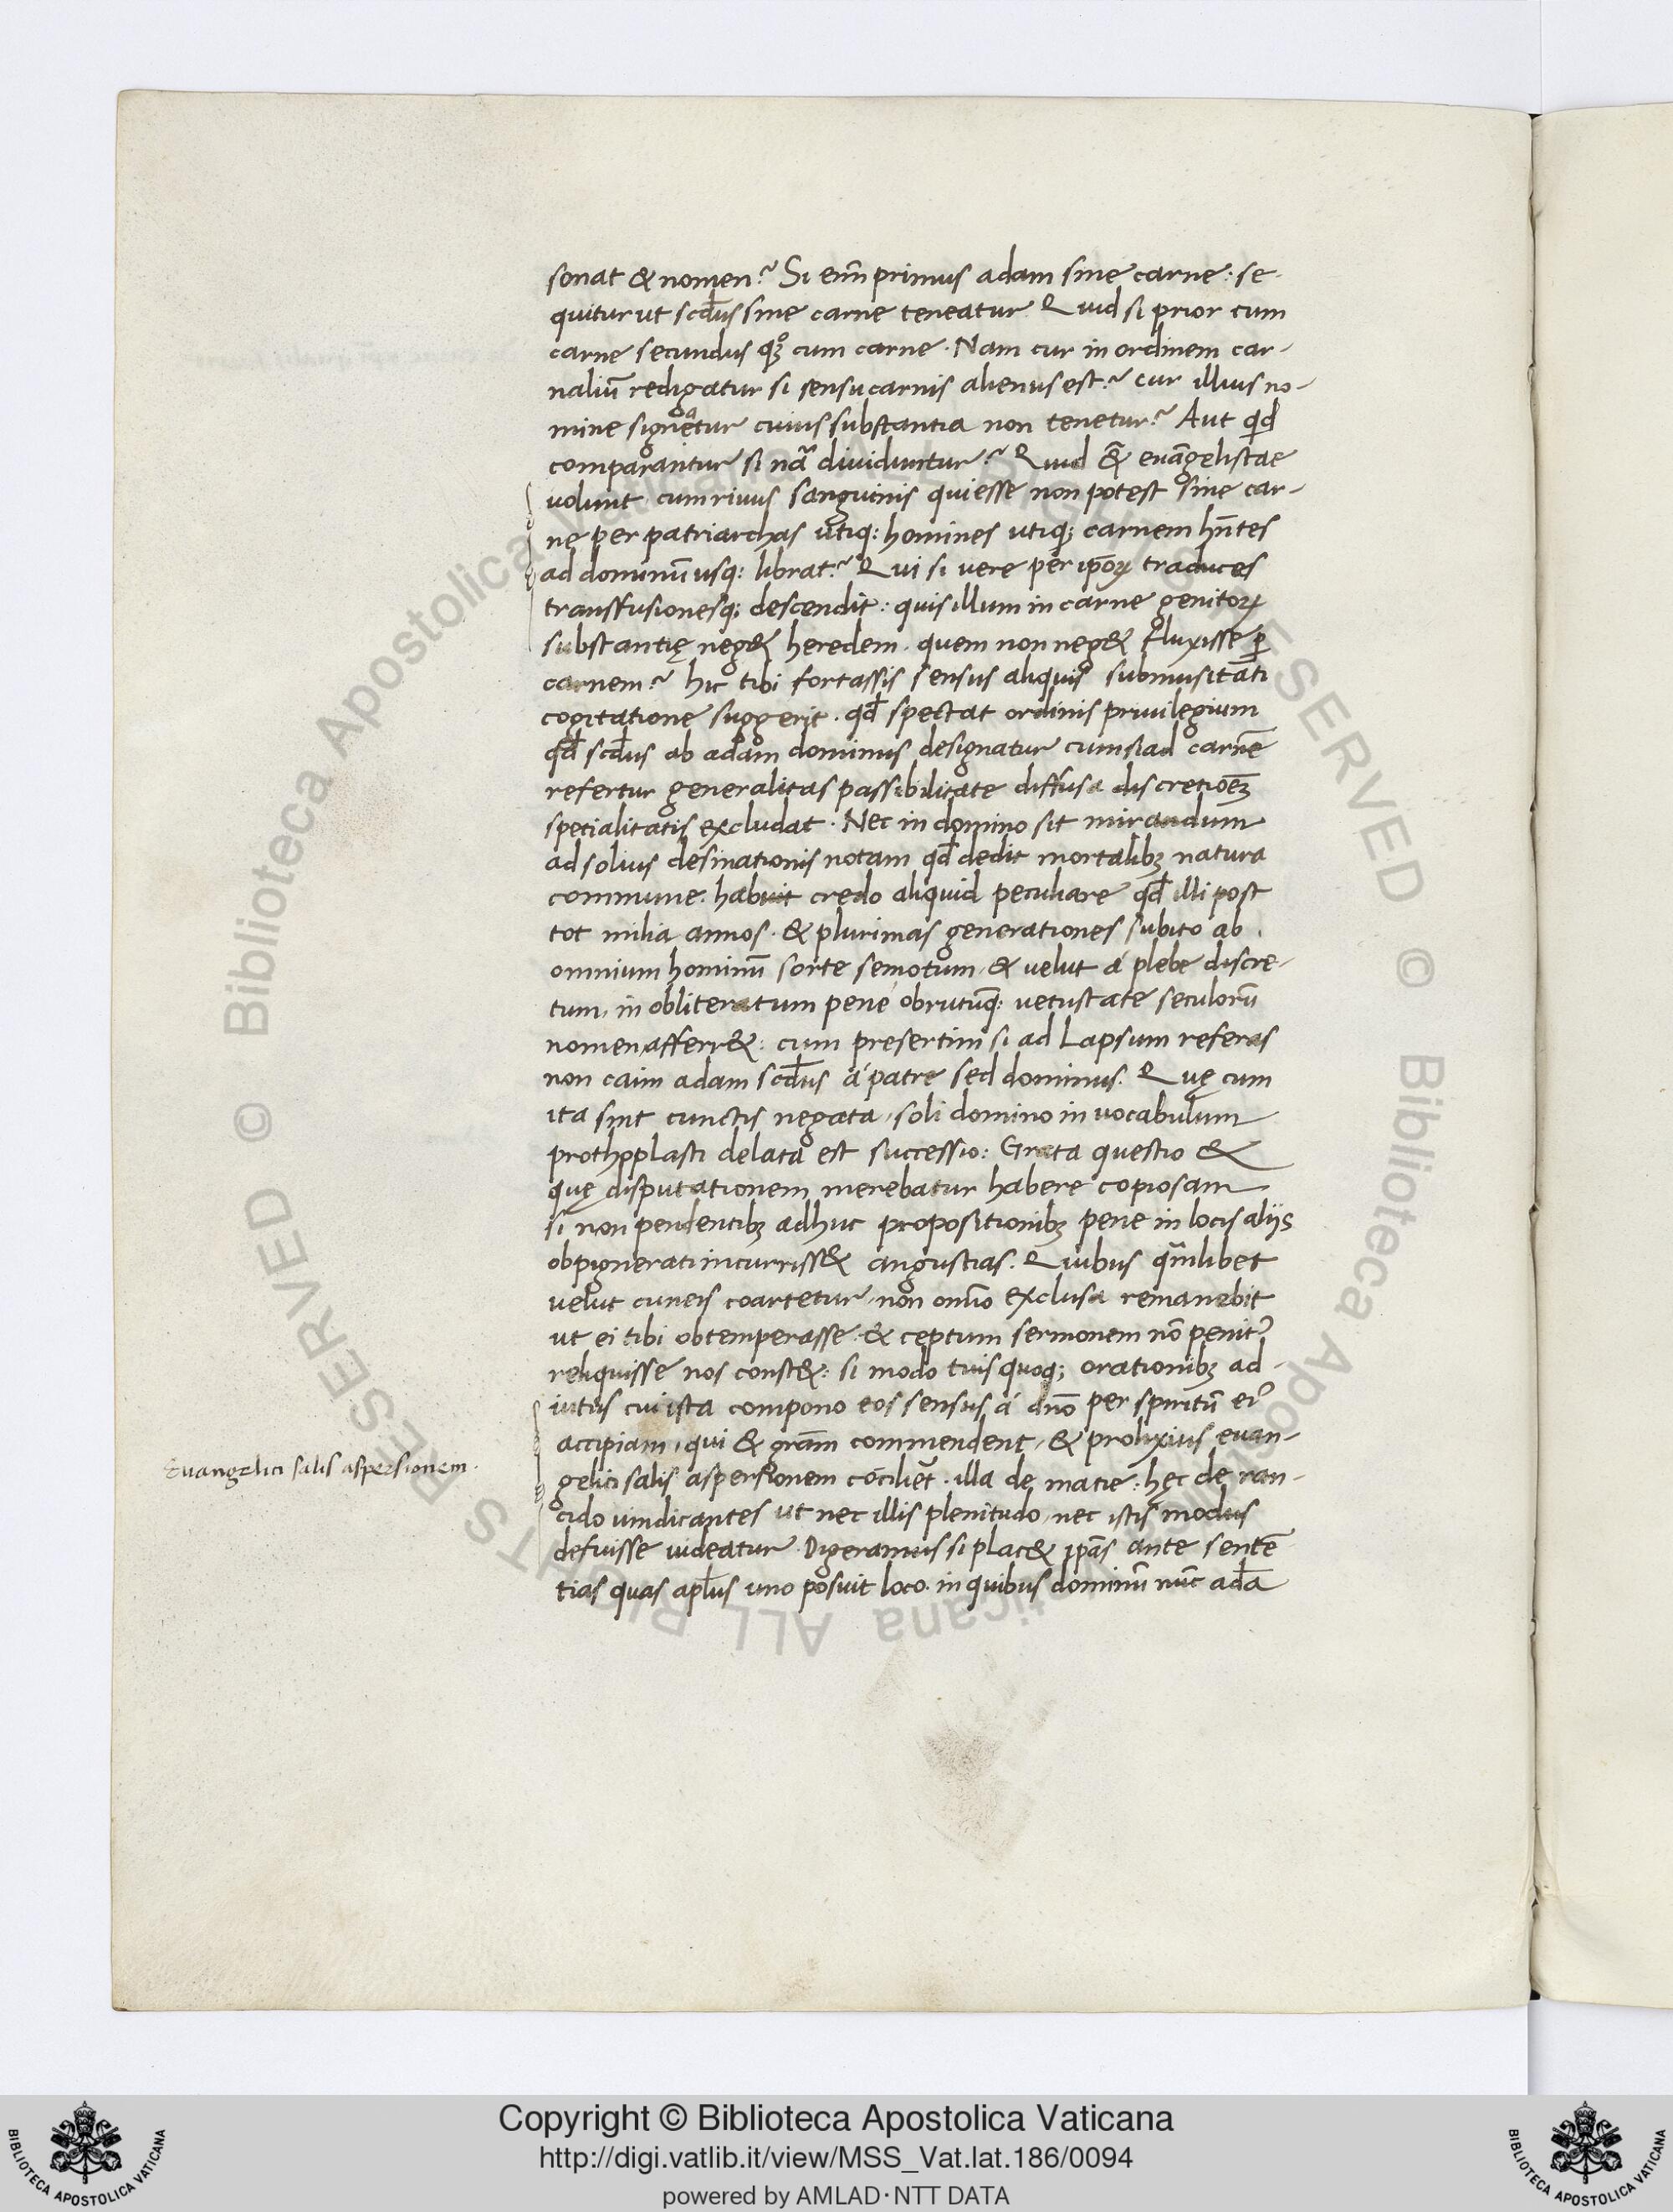 sonat & nomen? Si em̄ primus adam sine carne: se-
quitur ut scd̄us sine carne teneatur Quid si prior cum
carne secundus qͦꝫ cum carne. Nam cur in ordinem car-
naliū redigatur si sensu carnis alienus est? cur illius no-
mine signetur cuius substantia non tenetur? Aut qd
comparantur si nā diuiduntur? Quid & euāgelistae
uolunt cum riuus sanguinis qui esse non potest sine car-
ne per patriarchas utiqꝫ homines utiqꝫ carnem hn̄tes
ad dominū usqꝫ librat? Qui si uere per ip̄oꝝ traduces
transfusionesqꝫ descendit: quis illum in carne genitoꝝ
substantię neg& heredem. quem non neg& fluxisse ꝑ
carnem? hic tibi fortassis sensus aliquis submusitāti
cogitatione suggerit. qd̄ spectat ordinis priuilegium
qd̄ scd̄us ab adam dominus designatur cum si ad carnē
refertur generalitas passibilitate diffusa discretiōeꝫ
spetialitatis excludat. Nec in domino sit mirandum
ad solius desinationis notam qd̄ dedit mortalibꝫ natura
commune. habuit credo aliquid peculiare qd̄ illi post
tot milia annos. & plurimas generationes subito ab
omnium hominū sorte semotum, & uelut á plebe discre-
tum, in obliteratum pene obrutūqꝫ uetustate seculorū
nomen afferr&: cum presertim si ad Lapsum referas
non caim adam scd̄us á patre sed dominus. Quę cum
ita sint cunctis negata, soli domino in uocabulum
prothoplasti delata est successio: Grata questio &
quę disputationem merebatur habere copiosam
si non pendentibꝫ adhuc propositionibꝫ pene in locis aliis
obpignerati incurriss& angustias. Quibus qm̄libet
uelut cuneis coartetur, non omīo exclusa remanebit
ut ei tibi obtemperasse & ceptum sermonem nō penitꝰ
reliquisse nos const&: si modo tuis quoqꝫ orationibꝫ ad-
iutus cui ista compono eos sensus á dn̄o per spiritū eiꝰ
accipiam, qui & grām commendent, & prolixius euan-
gelici salis aspersionem cōciliēt. illa de macie: hęc de ran-
cido uindicantes ut nec illis plenitudo, nec istis modus
defuisse uideatur. Digeramus si plac& ip̄as ante sentē
tias quas apl̄us uno posuit loco. in quibus dominū nūc adā
Euangelici salis aspersionem.
Copyright © Biblioteca Apostolica Vaticana
http://digi.vatlib.it/view/MSS_Vat.lat.186/0094
powered by AMLAD·NTT DATA
BIBLIOTECA APOSTOLICA VATICANA
BIBLIOTECA APOSTOLICA VATICANA
© Biblioteca Apostolica Vaticana ALL RIGHTS RESERVED
© Biblioteca Apostolica Vaticana ALL RIGHTS RESERVED